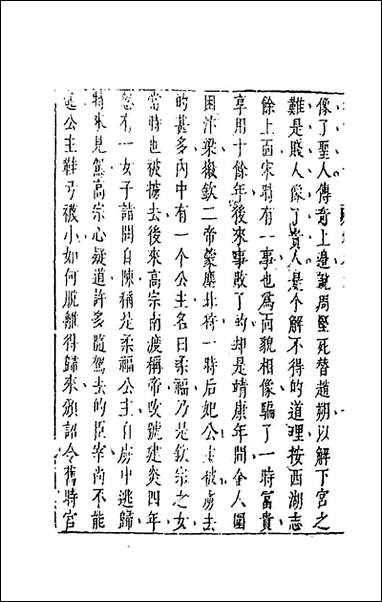 像了聖人傳奇上邊說周堅死替趙朔以解下宮之
難是賤人像了貴人是个解不得的道理按西湖志
餘上面宋時有一事也為面貌相像騙了一時富貴
享用十餘年後來事敗了的却是靖康年間金人圍
困汴梁徽欽二帝蒙塵北狩一時后妃公主被虜去
的甚多內中有一个公主名曰柔福乃是欽宗之女
當時也被擄去後來高宗南渡稱帝改號建炎四年
忽有一女子詣闕自陳稱是柔福公主自虜中逃歸
特來見駕高宗心疑道許多隨駕去的臣宰尚不能
逃公主鞋弓襪小如何脫離得歸來頒詔令舊時宮